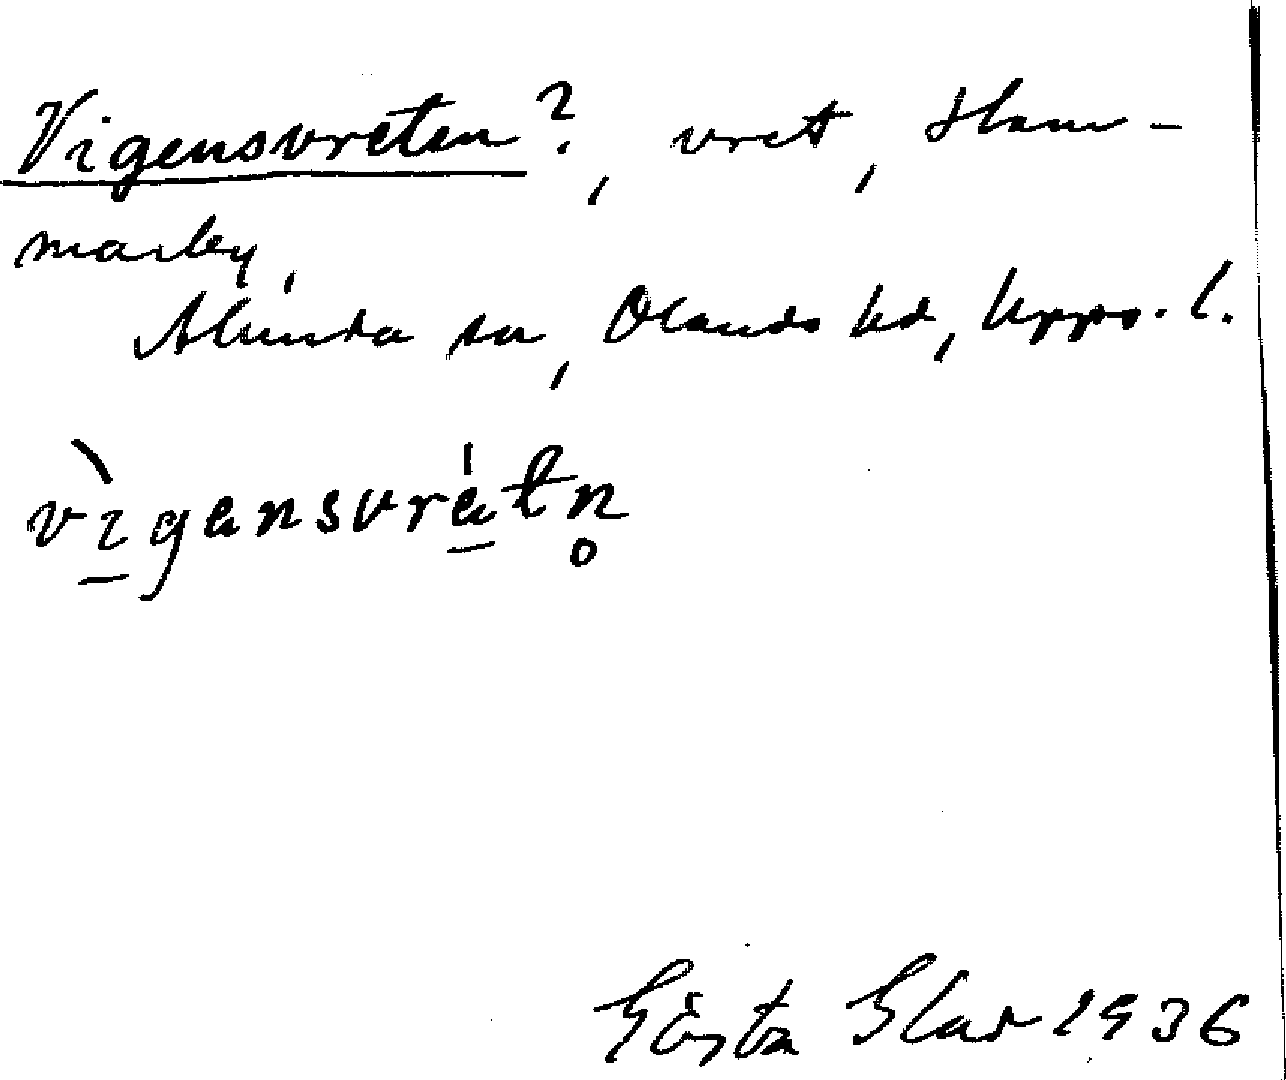 Vigensvreten?, vret, Ham-
marby,
Alunda sn, Olands hd, Upps. l.
vìgensvretn̥
Gösta 1936